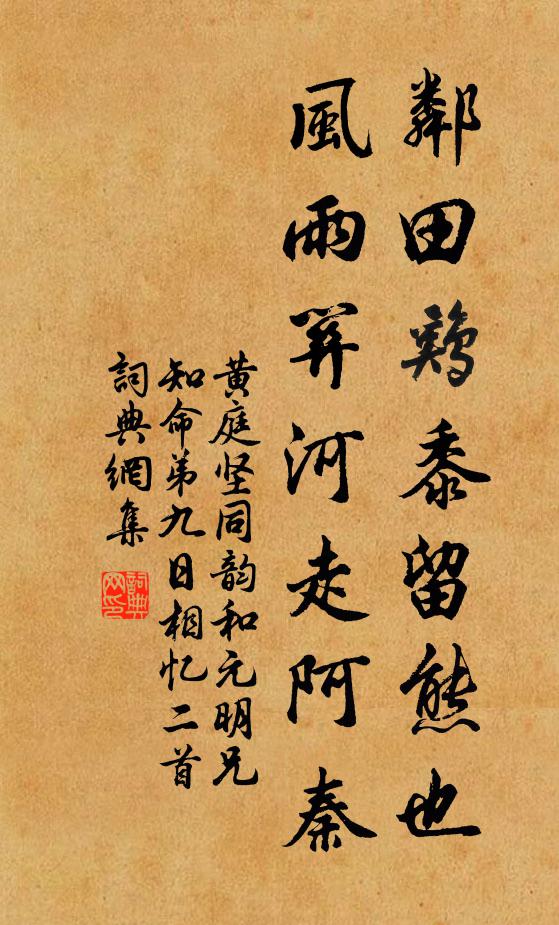 鄰田鷄黍留熊也
風雨關河走阿秦
黄庭坚同韵和元明兄
知命弟九日相忆二首
詞典網集
詞典網印